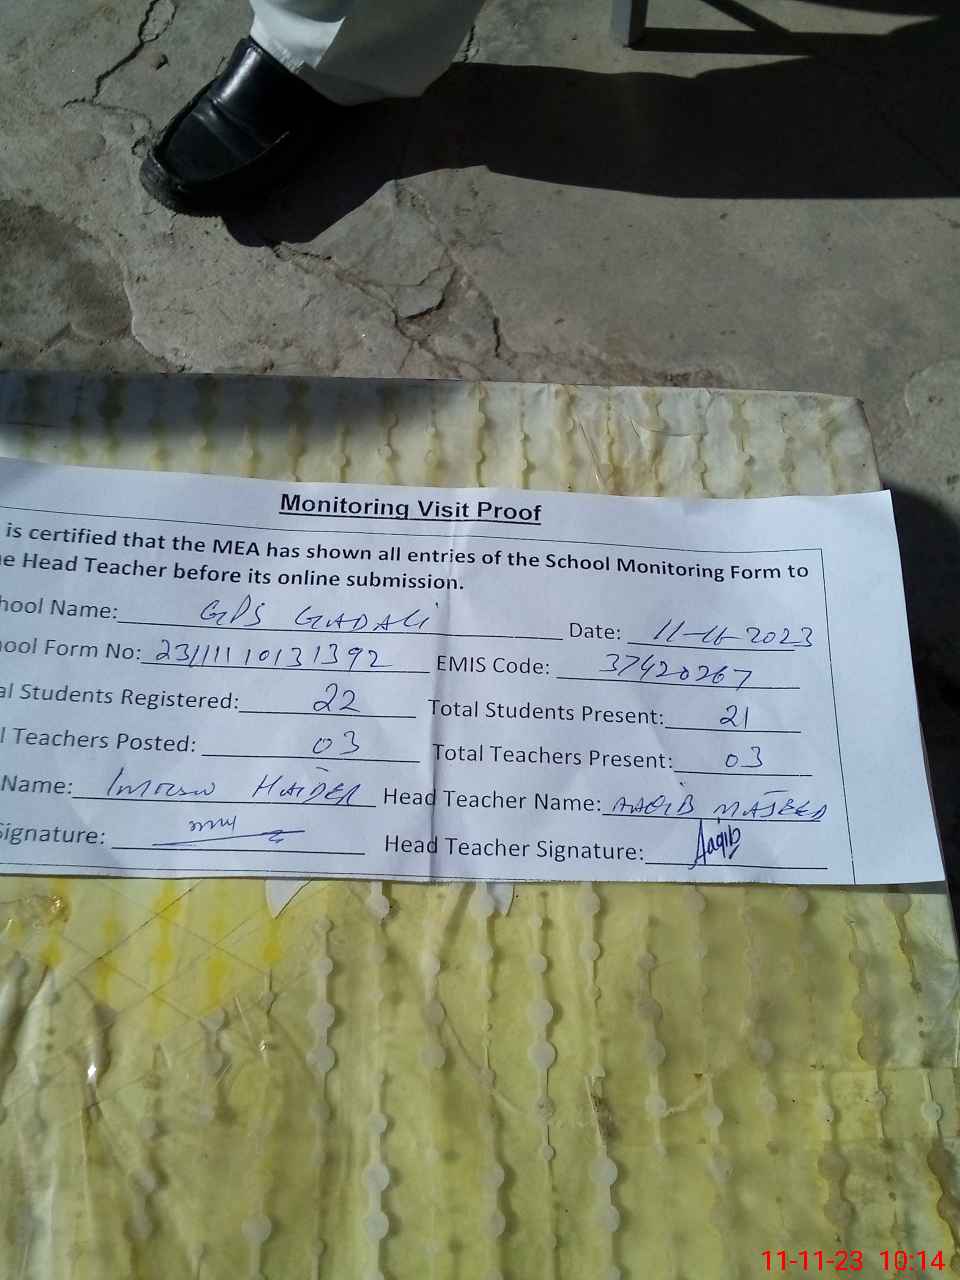 Monitoring Visit Proof
is certified that the MEA has shown all entries of the School Monitoring Form to
e Head Teacher before its online submission.
hool Name: GPS GADALI Date: 11-11-2023
ool Form No: 231111 10131392 EMIS Code: 37420267
al Students Registered: 22 Total Students Present: 21
l Teachers Posted: 03 Total Teachers Present: 03
Name: Imran HAIDER Head Teacher Name: AAQIB MAJEED
Signature: Head Teacher Signature: Aaqib
11-11-23 10:14